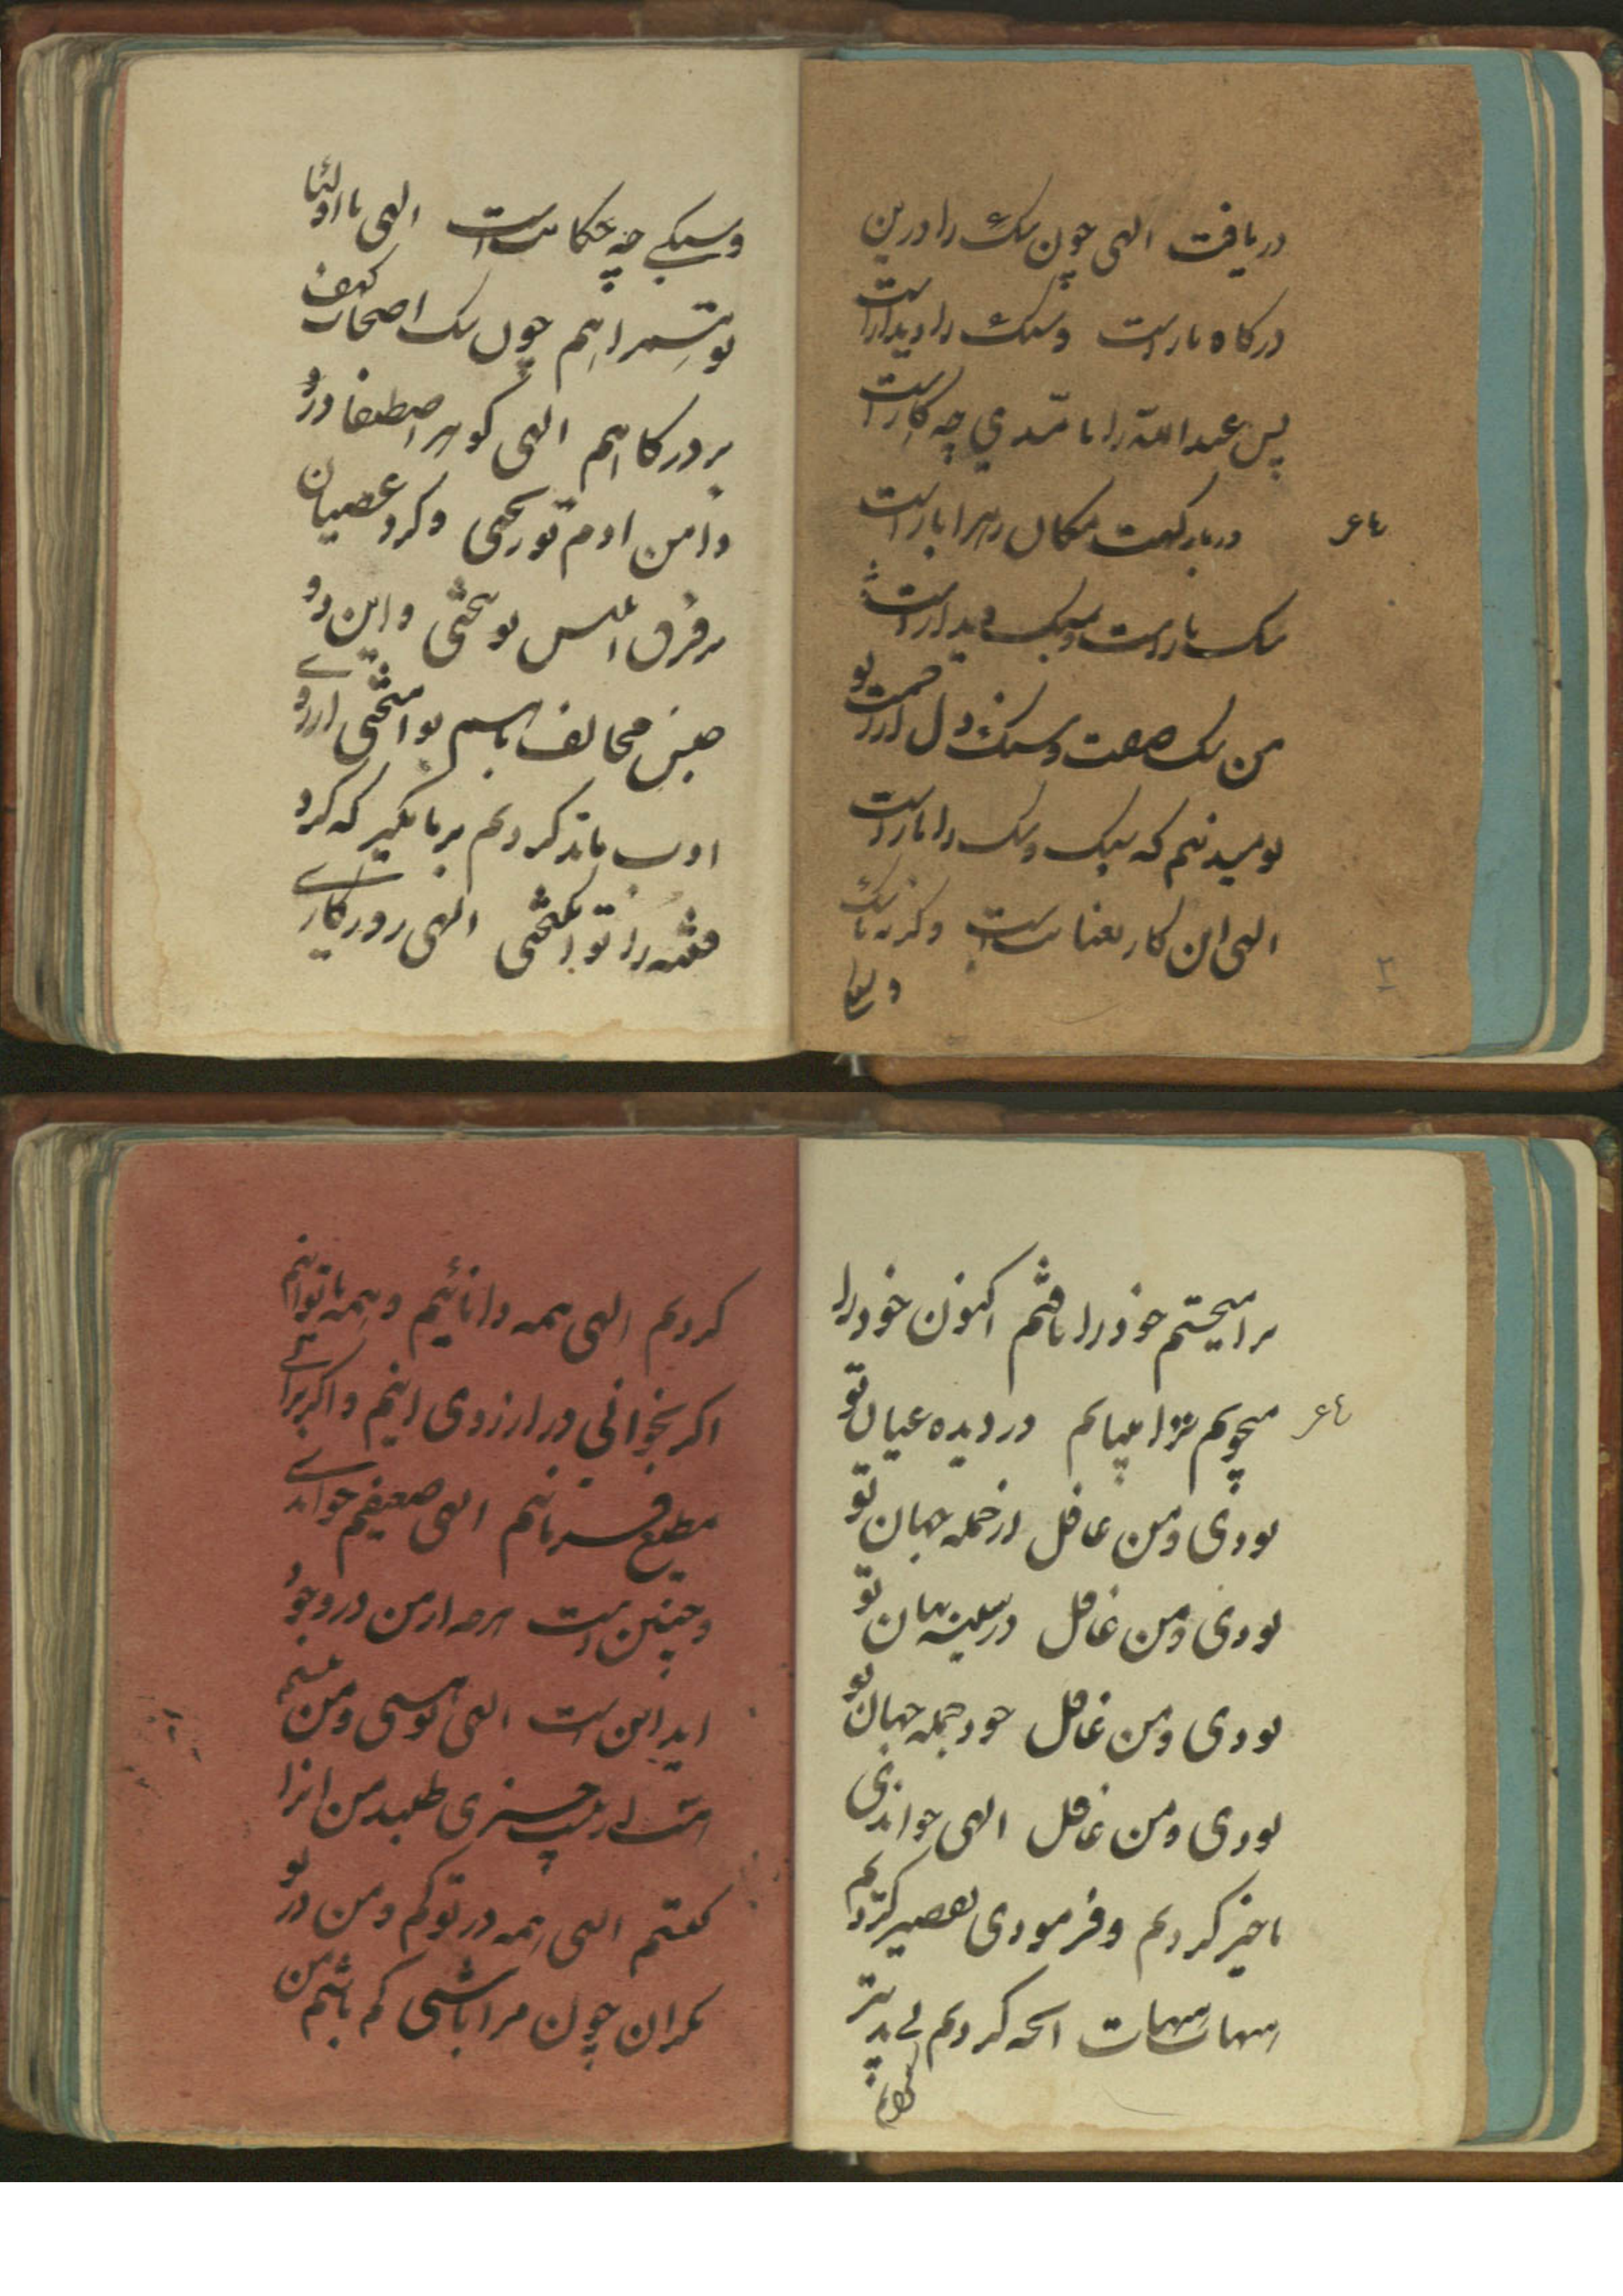 دریافت الهی چون سگ را درین
درگاه بار است و سنگ را دیدار است
پس عبدالله را با نا امیدی چه کار است
در بارگهت سگان ره را بار است
سگ بار است و سنگ دیدار است
من سگ صفت و سنگ دل از رحمت تو
نومید نیم که سنگ و سگ را بار است
الهی این کار بعنایت است وگرنه با سگ
و سگی
رباعی
۲
وسگی چه حکایت است الهی با اولیا
تو همراهیم چون سگ اصحاب کهف
بر درگاهیم الهی گوهر اصطفا در
دامن ادم تو ریختی و گرد عصیان
بر فرق ابلیس تو بیختی و این دو
جنس مخالف باسم تو امیختی از روی
ادب ما بد کردیم بر ما مگیر که گرد
فتنه را تو انگیختی الهی روزگاری
ترا میجستم خود را یافتم اکنون خود را
میجویم ترا میابم در دیده عیان تو
بودی و من غافل از جمله جهان تو
بودی و من غافل در سینه نهان تو
بودی و من غافل خود جمله جهان تو
بودی و من غافل الهی خواندی
تاخیر کردیم و فرمودی تقصیر کردیم
هیهات هیهات انچه کردیم بی تدبیر
کردیم
رباعی
کردیم الهی همه دانائیم و همه تو انیم
اگر بخوانی در ارزوی انیم و اگر برانی
مطیع فرمانیم الهی ضعیفم خواندی
و چنین است هرچه از من در وجود
اید این است الهی تو هستی و من نیستم
هستی از نیست چیزی طلبد من انرا
گفتم الهی همه در تو گم و من در تو
نگران چون مرا باشی گم باشم من